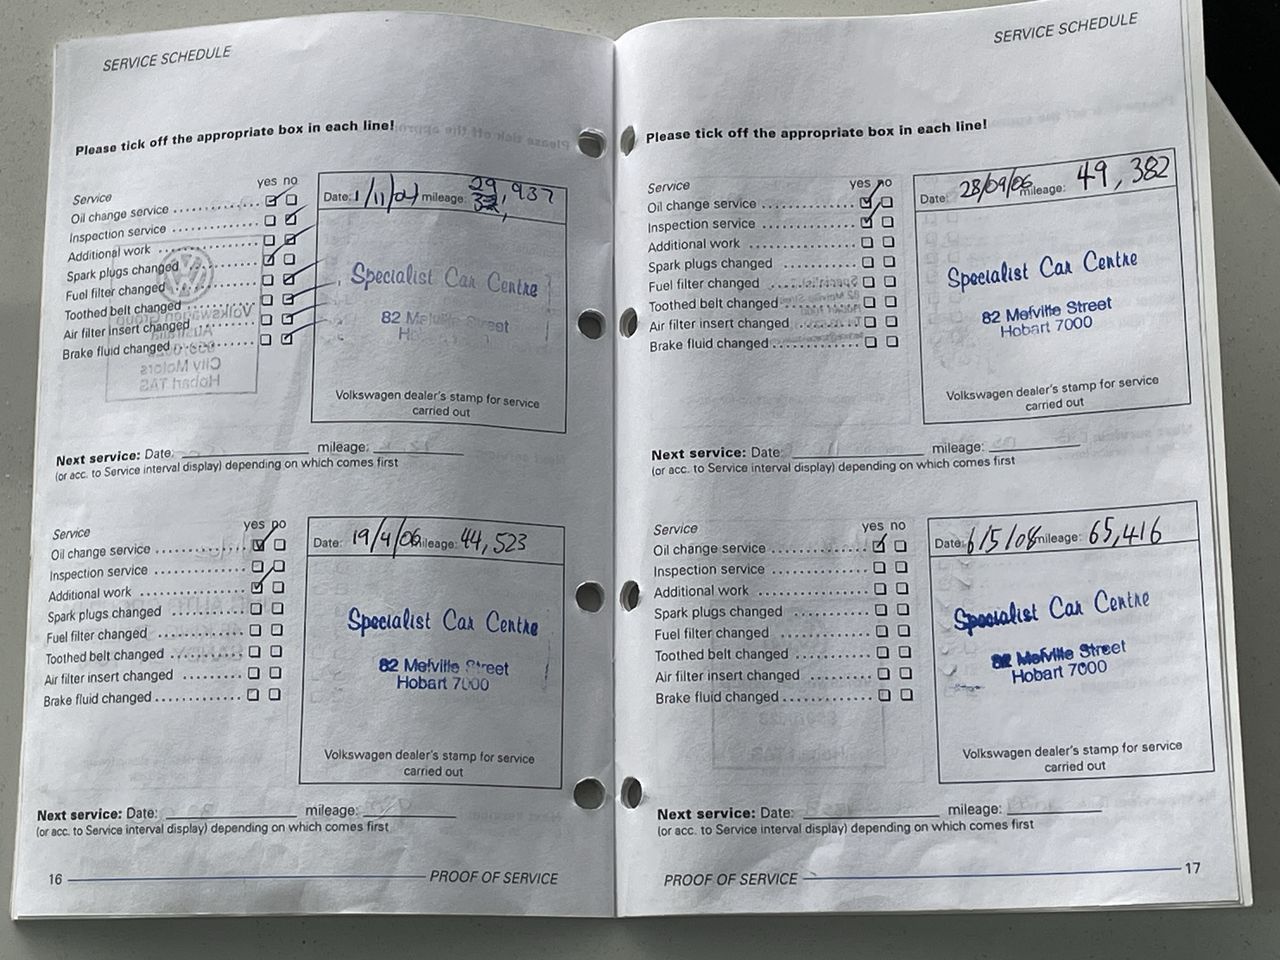 SERVICE SCHEDULE
Please tick off the appropriate box in each line!
Service
yes no
Oil change service
Inspection service
Additional work
Spark plugs changed
Fuel filter changed
Toothed belt changed
Air filter insert changed
Brake fluid changed
Date: 1/11/04 mileage: 29,937
Specialist Car Centre
82 Melville Street
Hobart
Volkswagen dealer's stamp for service
carried out
Next service: Date: mileage:
(or acc. to Service interval display) depending on which comes first
Service
yes no
Oil change service
Inspection service
Additional work
Spark plugs changed
Fuel filter changed
Toothed belt changed
Air filter insert changed
Brake fluid changed
Date: 19/4/06 mileage: 44,523
Specialist Car Centre
82 Melville Street
Hobart 7000
Volkswagen dealer's stamp for service
carried out
Next service: Date: mileage:
(or acc. to Service interval display) depending on which comes first
16 PROOF OF SERVICE
SERVICE SCHEDULE
Please tick off the appropriate box in each line!
Service
yes no
Oil change service
Inspection service
Additional work
Spark plugs changed
Fuel filter changed
Toothed belt changed
Air filter insert changed
Brake fluid changed
Date: 28/09/06 mileage: 49,382
Specialist Car Centre
82 Melville Street
Hobart 7000
Volkswagen dealer's stamp for service
carried out
Next service: Date: mileage:
(or acc. to Service interval display) depending on which comes first
Service
yes no
Oil change service
Inspection service
Additional work
Spark plugs changed
Fuel filter changed
Toothed belt changed
Air filter insert changed
Brake fluid changed
Date: 6/5/08 mileage: 65,416
Specialist Car Centre
82 Melville Street
Hobart 7000
Volkswagen dealer's stamp for service
carried out
Next service: Date: mileage:
(or acc. to Service interval display) depending on which comes first
PROOF OF SERVICE 17